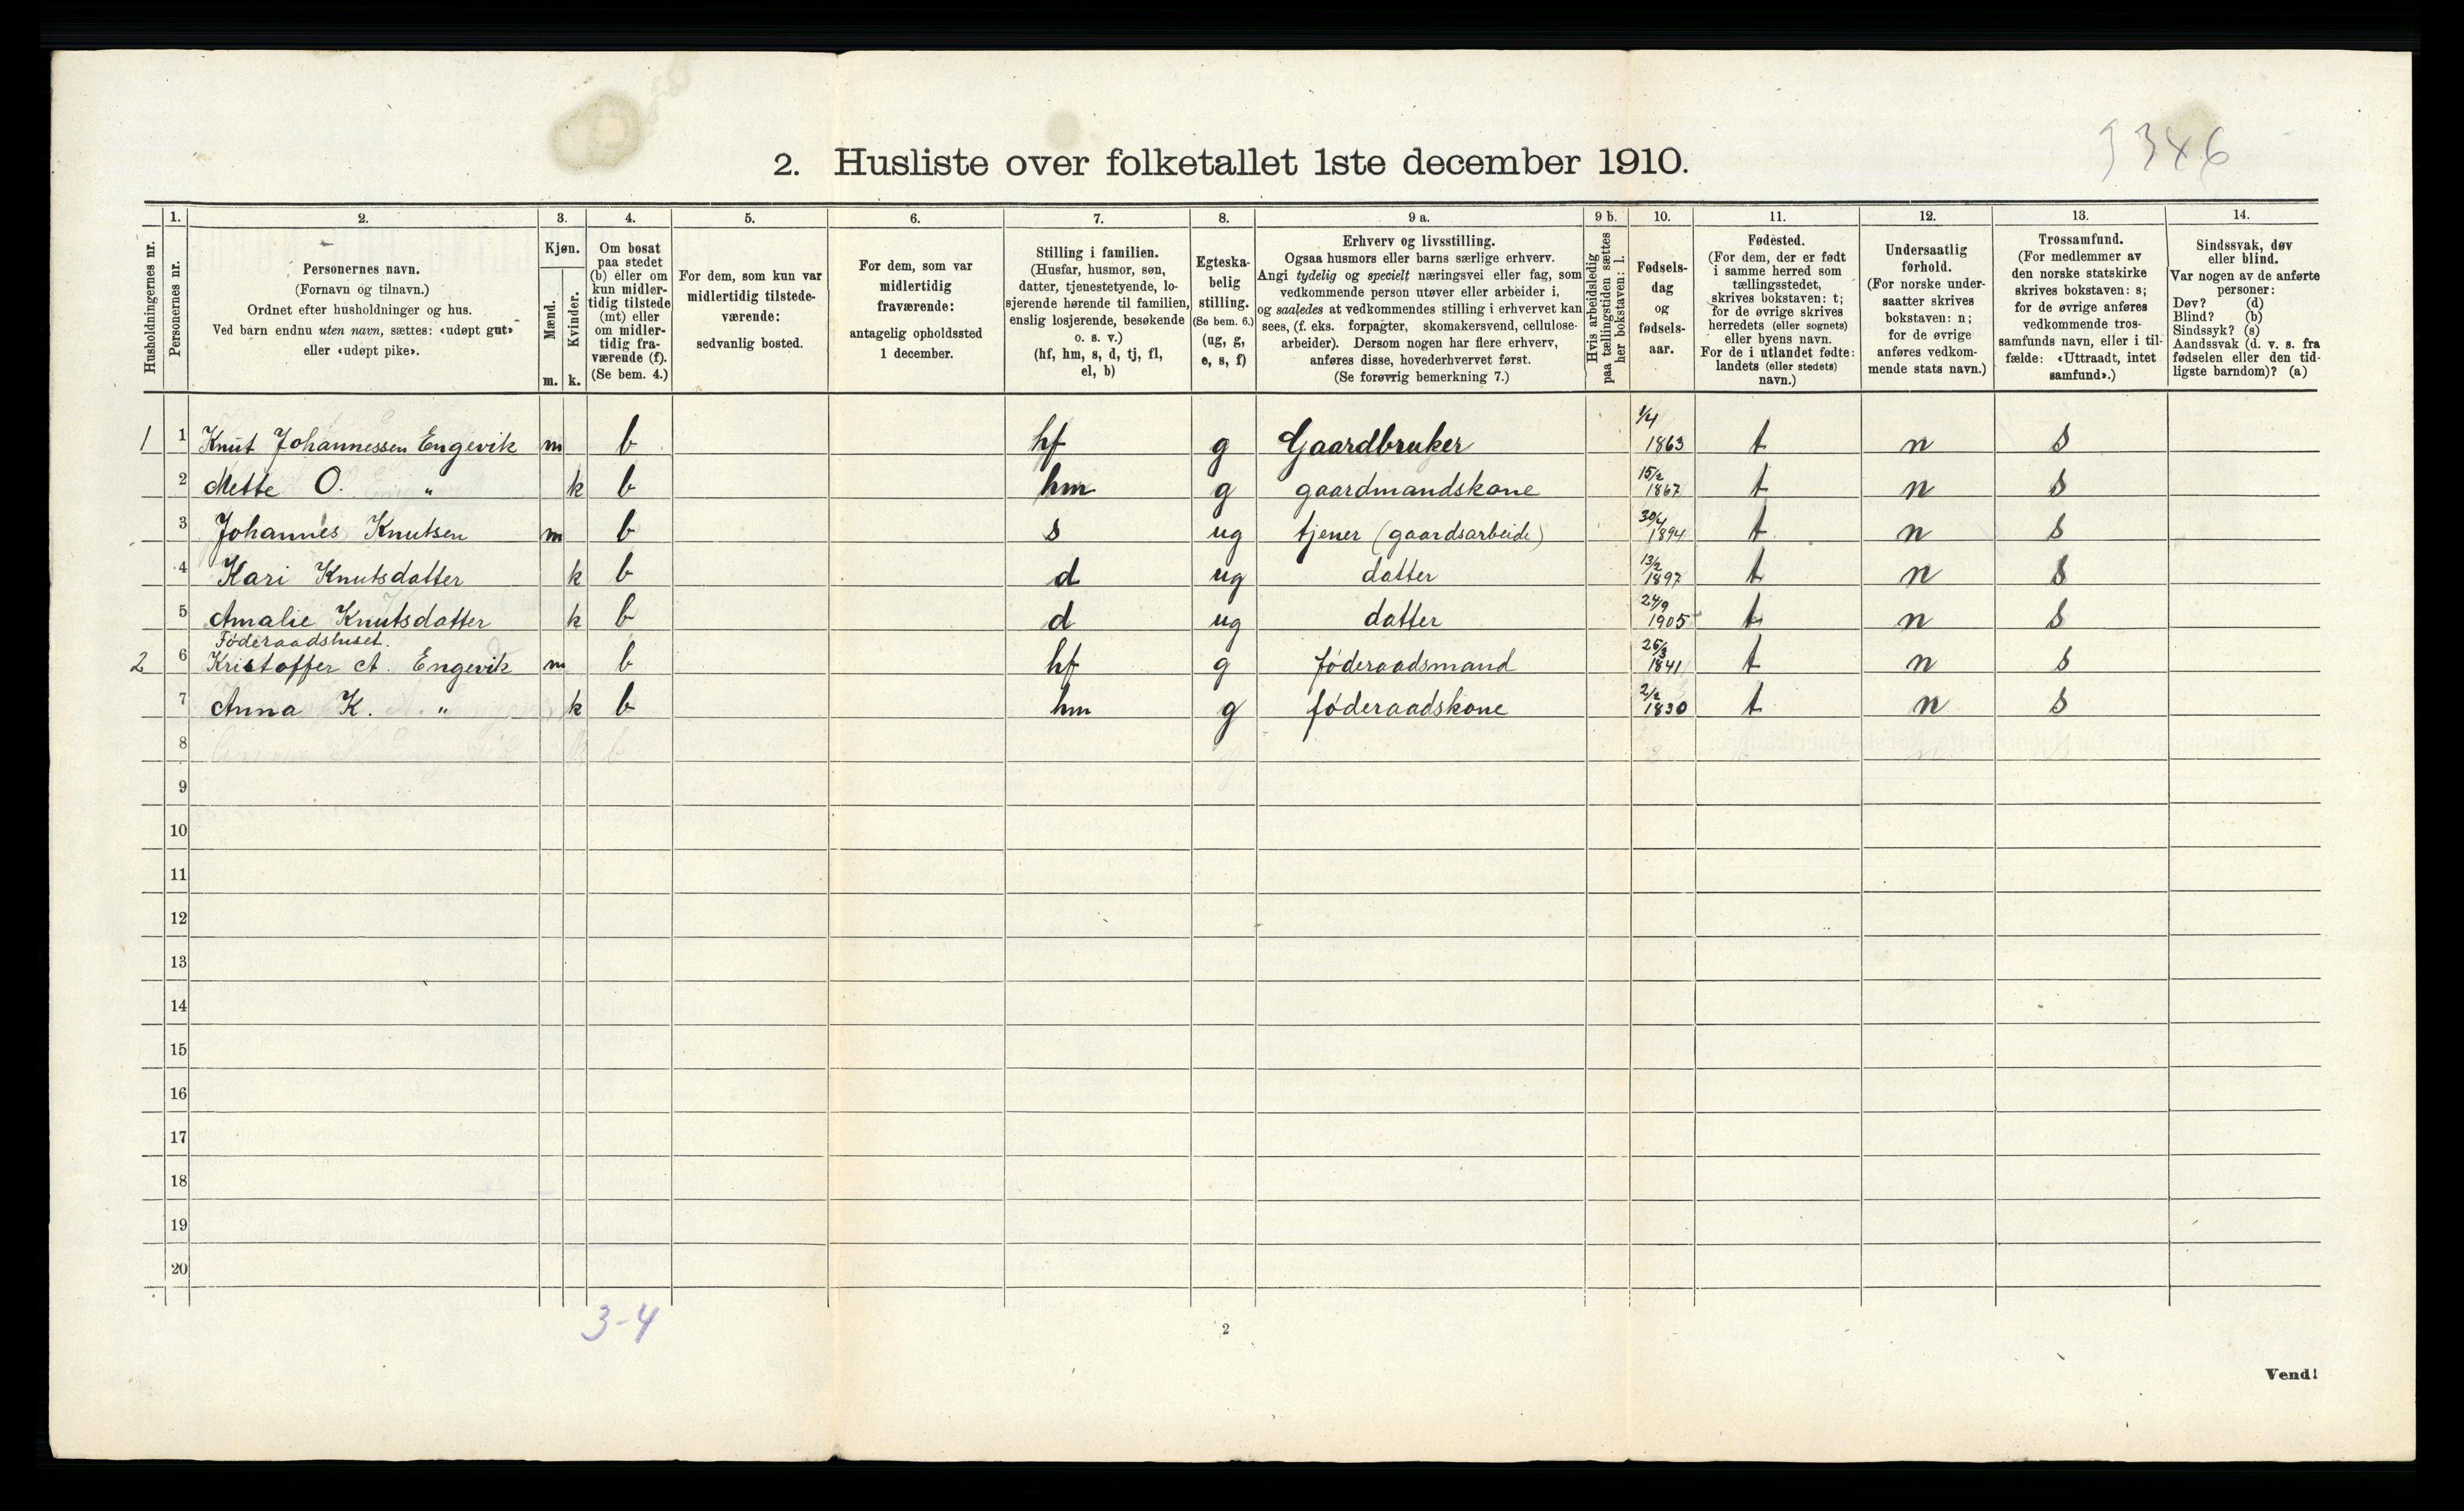 3346
2. Husliste over folketallet 1ste december 1910.
Husholdningernes nr.
1.
Personernes nr.
2.
Personernes navn.
(Fornavn og tilnavn.)
Ordnet efter husholdninger og hus.
Ved barn endnu uten navn, sættes: «udøpt gut»
eller «udøpt pike».
3.
Kjøn.
Mænd.
Kvinder.
m. k.
4.
Om bosat
paa stedet
(b) eller om
kun midler-
tidig tilstede
(mt) eller
om midler-
tidig fra-
værende (f).
(Se bem. 4.)
5.
For dem, som kun var
midlertidig tilstede-
værende:
sedvanlig bosted.
6.
For dem, som var
midlertidig
fraværende:
antagelig opholdssted
1 december.
7.
Stilling i familien.
(Husfar, husmor, søn,
datter, tjenestetyende, lo-
sjerende hørende til familien,
enslig losjerende, besøkende
o. s. v.)
(hf, hm, s, d, tj, fl,
el, b)
8.
Egteska-
belig
stilling.
(Se bem. 6.)
(ug, g,
e, s, f)
9 a.
Erhverv og livsstilling.
Ogsaa husmors eller barns særlige erhverv.
Angi tydelig og specielt næringsvei eller fag, som
vedkommende person utøver eller arbeider i,
og saaledes at vedkommendes stilling i erhvervet kan
sees, (f. eks. forpagter, skomakersvend, cellulose-
arbeider). Dersom nogen har flere erhverv,
anføres disse, hovederhvervet først.
(Se forøvrig bemerkning 7.)
9 b.
Hvis arbeidsledig
paa tællingstiden sættes
her bokstaven: l.
10.
Fødsels-
dag
og
fødsels-
aar.
11.
Fødested.
(For dem, der er født
i samme herred som
tællingsstedet,
skrives bokstaven: t;
for de øvrige skrives
herredets (eller sognets)
eller byens navn.
For de i utlandet fødte:
landets (eller stedets)
navn.)
12.
Undersaatlig
forhold.
(For norske under-
saatter skrives
bokstaven: n;
for de øvrige
anføres vedkom-
mende stats navn.)
13.
Trossamfund.
(For medlemmer av
den norske statskirke
skrives bokstaven: s;
for de øvrige anføres
vedkommende tros-
samfunds navn, eller i til-
fælde: «Uttraadt, intet
samfund».)
14.
Sindssvak, døv
eller blind.
Var nogen av de anførte
personer:
Døv? (d)
Blind? (b)
Sindssyk? (s)
Aandssvak (d. v. s. fra
fødselen eller den tid-
ligste barndom)? (a)
1 1 Knut Johannessen Engevik m b hf g Gaardbruker 1/4 1863 t n s
2 Mette O. " k b hm g gaardmandskone 15/2 1867 t n s
3 Johannes Knutsen m b s ug tjener (gaardsarbeide) 30/4 1894 t n s
4 Kari Knutsdatter k b d ug datter 13/2 1897 t n s
5 Amalie Knutsdatter k b d ug datter 24/9 1905 t n s
Føderaadshuset.
2 6 Kristoffer A. Engevik m b hf g føderaadsmand 25/3 1841 t n s
7 Anna K. " k b hm g føderaadskone 2/2 1830 t n s
8
9
10
11
12
13
14
15
16
17
18
19
20
3-4
2
Vend!